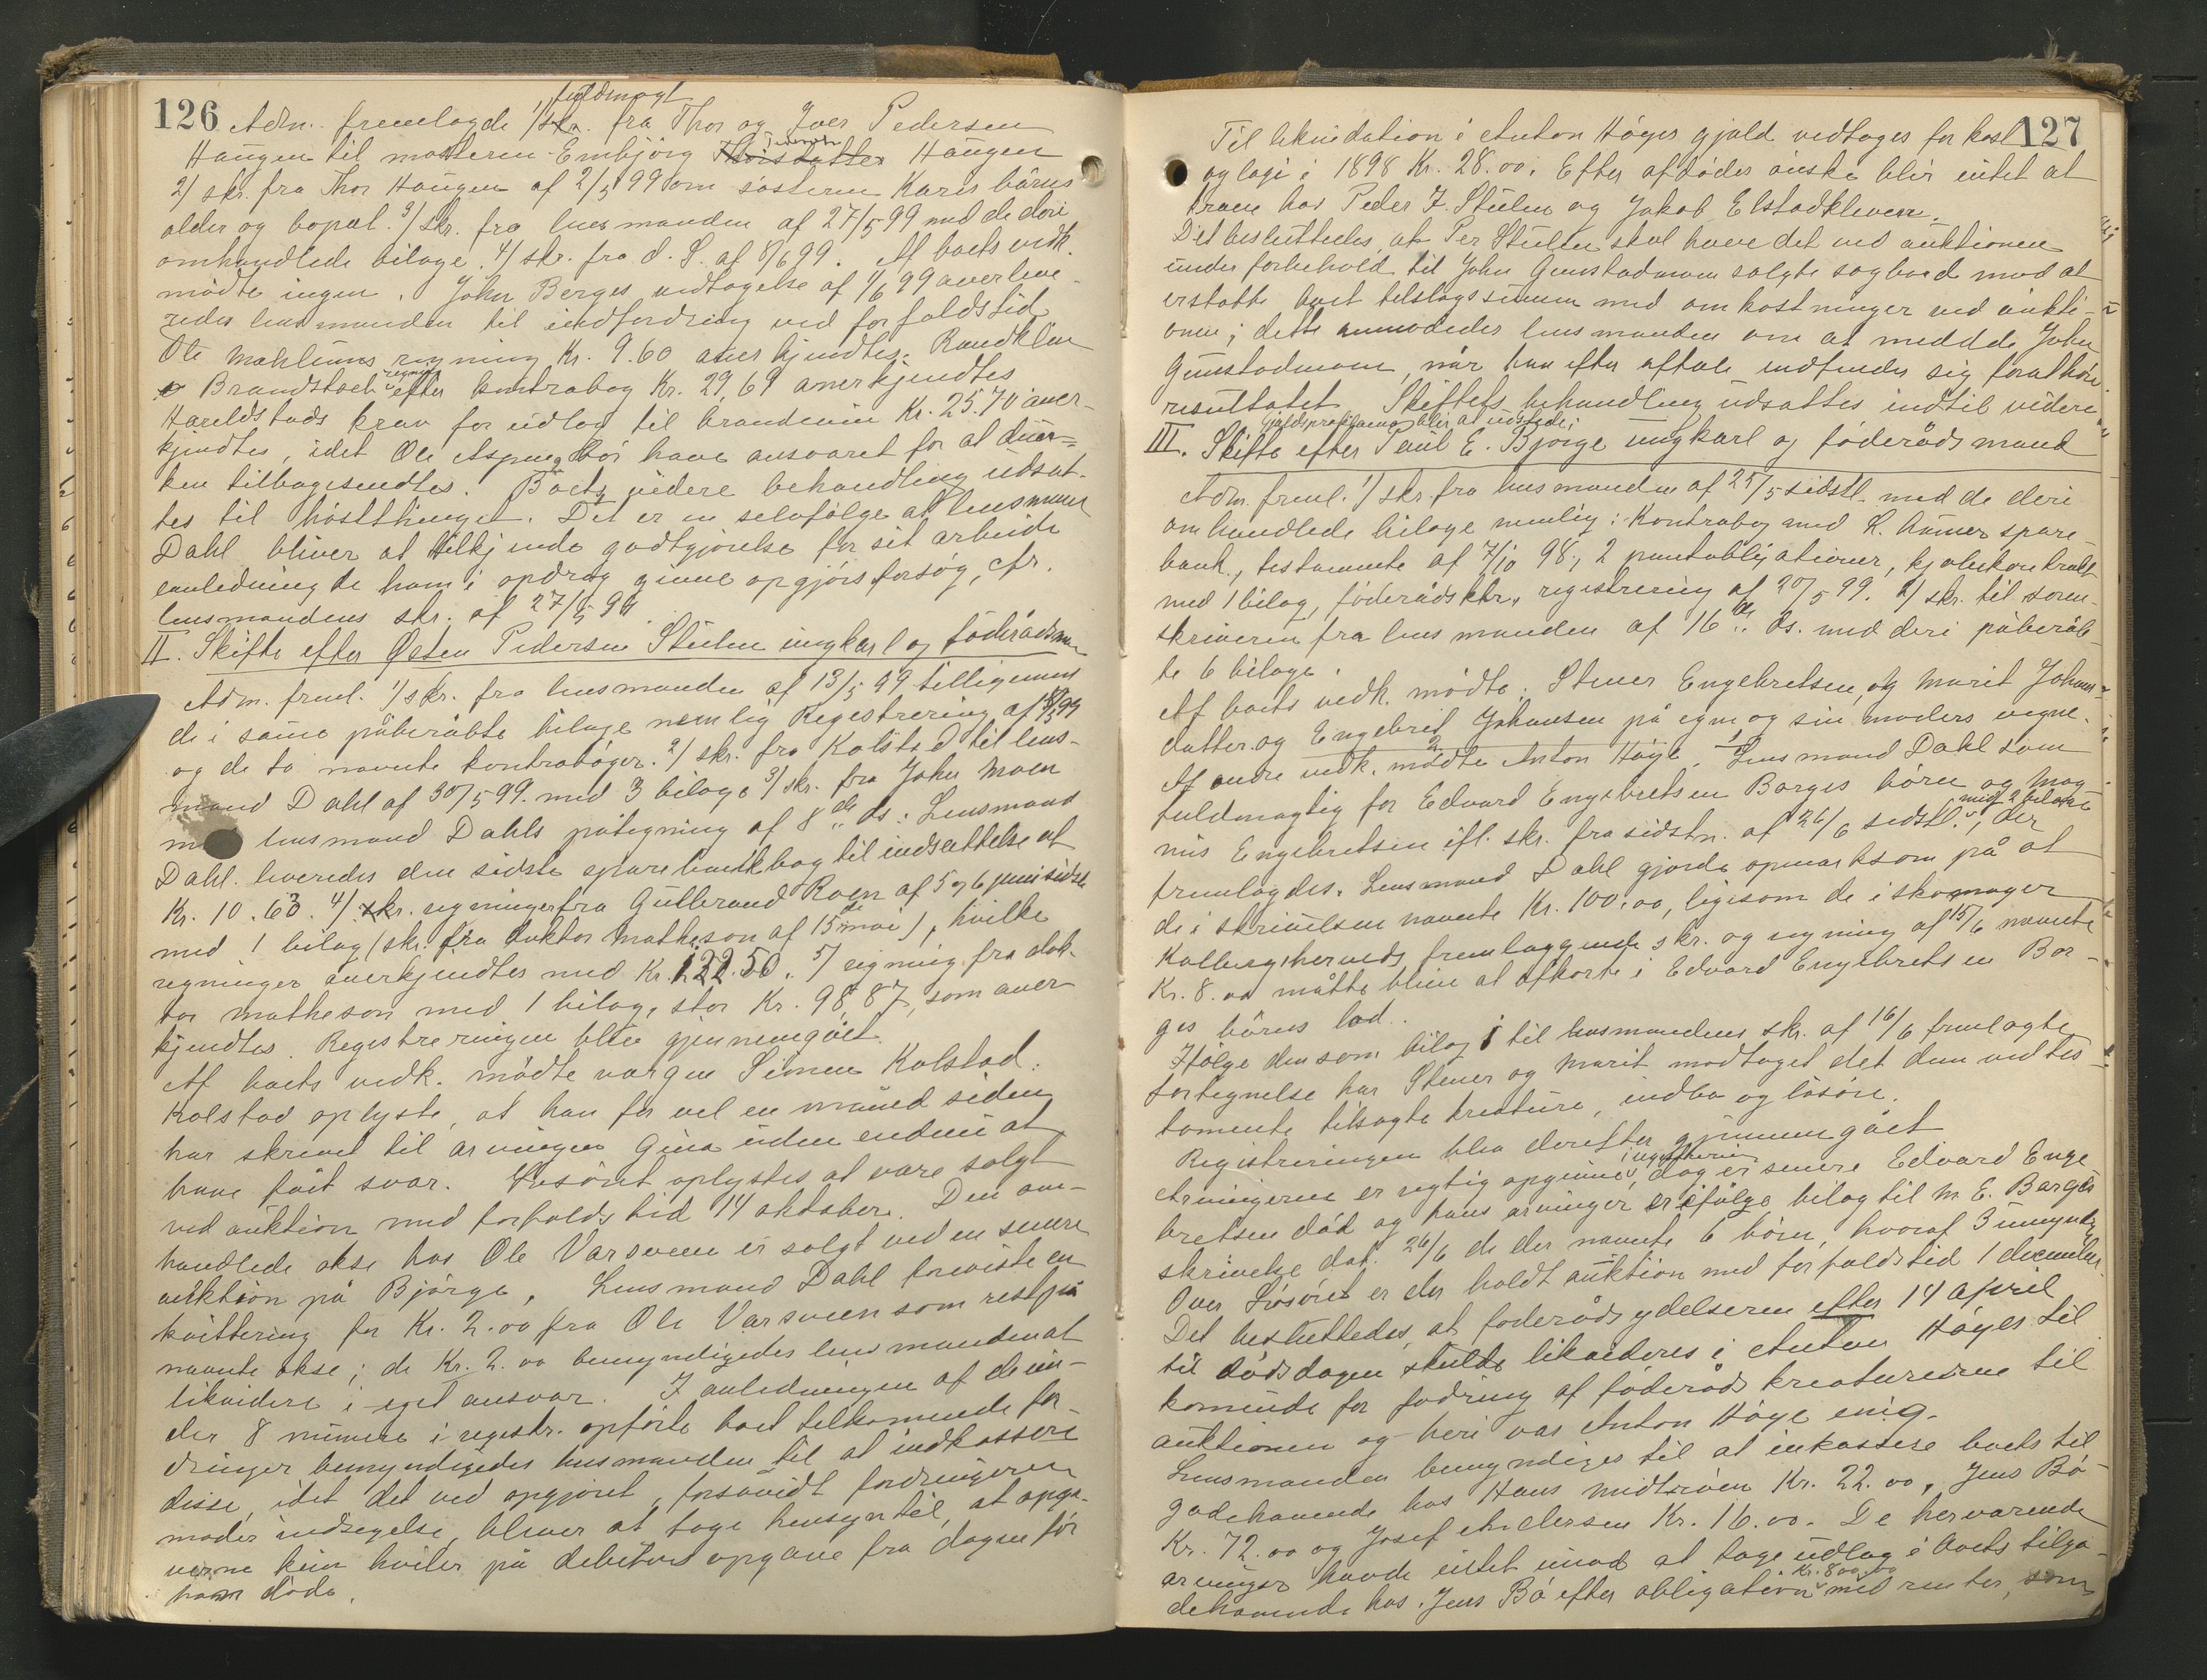 126
fuldmagt
Adm. fremlagde 1/ skr. fra Thor og Iver Pedersen
Haugen til mosteren Embjörg Thorsdatter Haugen
2/ skr. fra Thor Haugen af 2/5 99 om sösteren Karis börns
alder og bopæl. 3/ skr. fra lensmanden af 27/5 99 med de deri
omhandlede bilage. 4/ skr. fra d. S. af 8/6 99. Af boets vedk.
mödte ingen. John Berges vedtagelse af 1/6 99 overleve-
redes lensmanden til indfordring ved forfaldstid
Ole Mæhlums regning Kr. 9.60 anerkjendtes. Randklev
& Brandstads regning efter kontrabog Kr. 29,69 anerkjendtes
Hareldstads krav for udlæg til brændevin Kr. 25.70 aner-
kjendtes, idet Ole Aspeng bör have ansvaret for at dun-
ken tilbagesendtes. Boets videre behandling udsat-
tes til höstthinget. Det er en selvfölge at lensmand
Dahl bliver at tilkjende godtgjörelse for sit arbeide
i anledning de ham i opdrag givne opgjörsforsög, cfr.
lensmandens skr. af 27/5 99
II. Skifte efter Østen Pedersen Stulen ungkarl og föderådsm
Adm. freml. 1/ skr. fra lensmanden af 13/5 99 tilligemed
de i samme påberåbte bilage nemlig Registrering af 13/5 99
og de to nævnte kontrabøger. 2/ skr. fra Kolstad til lens-
mand Dahl af 30/5 99. med 3 bilage 3/ skr. fra John Moen
med lensmand Dahls påtegning af 8de ds: Lensmand
Dahl leveredes den sidste sparebankbog til indsættelse at
Kr. 10.63. 4/ skr. regninger fra Gulbrand Roen af 5 og 6 juni sidstl
med 1 bilag (skr. fra doktor Matheson af 15de mai), hvilke
regninger anerkjendtes med Kr. 122.50. 5/ regning fra dok-
tor Matheson med 1 bilag, stor Kr. 98,87, som aner-
kjendtes. Registreringen blev gjennemgået.
Af boets vedk. mödte værgen Simen Kolstad.
Kolstad oplyste, at han for vel en måned siden
har skrevet til arvingen Gina uden endnu at
have fåit svar. Lösöret oplystes at være solgt
ved auktion med forfaldstid 14 oktober. Den om-
handlede okse hos Ole Varsveen er solgt ved en senere
auktion på Bjørge. Lensmand Dahl foreviste en
kvittering for Kr. 2.00 fra Ole Varsveen som rest på
nævnte okse; de Kr. 2.00 bemyndigedes lensmanden at
likvidere i eget ansvar. I anledningen af de un-
der 8 numere i registr. opförte boet tilkommende for-
dringer bemyndigedes lensmanden til at indkassere
disse, idet det ved opgjöret, forsåvidt fordringerne
möder indsigelse, bliver at tage hensyn til, at opga-
verne kun hviler på debitors opgave fra dagen för
han döde.
127
Til likvidation i Anton Höyes gjæld vedtages for kost
og logi i 1898 Kr. 28.00. Efter afdödes önske blir intet at
kræve hos Peder I. Stulen og Jakob Elstadkleven.
Det besluttedes, at Per Stulen skal have det ved auktionen
under forbehold til John Gunstadmoen solgte sagbord mod at
erstatte boet tilslagssummen med omkostninger ved aukti-
onen; dette anmodedes lensmanden om at meddele John
Gunstadmoen, når han efter aftale indfinder sig for at höre
resultatet. Skiftets behandling udsattes indtil videre
gjældsproklama blir at udstede;
III. Skifte efter Paul E. Bjørge ungkarl og föderådsmand
Adm. freml. 1/ skr. fra lensmanden af 25/5 sidstl. med de deri
omhandlede bilage nemlig: Kontrabog med L. hamer spare-
bank, testamente af 7/10 98, 2 pantobligationer, kjøbekontrakt
med 1 bilag, föderådsktr., registrering af 20/5 99. 2/ skr. til soren-
skriveren fra lensmanden af 16de ds. med deri påberåb-
te 6 bilage.
Af boets vedk. mödte: Stener Engebretsen, og Marit Johans-
datter og Engebret Johansen på egne og sin moders vegne.
Af andre vedk. mödte Anton Höye. Lensmand Dahl som
fuldmægtig for Edvard Engebretsen Borges börn og Mag-
nus Engebretsen ifl. skr. fra sidstn. af 26/6 sidstl. med 2 bilage, der
fremlagdes. Lensmand Dahl gjorde opmærksom på at
de i skrivelsen nævnte Kr. 100.00, ligesom de i skomager
Kolbergsherveds fremlæggende skr. og regning af 15/6 nævnte
Kr. 8.00 måtte blive at afkorte i Edvard Engebretsen Bor-
ges börns lod.
Ifölge den som bilag 1 til lensmandens skr. af 16/6 fremlagte
fortegnelse har Stener og Marit modtaget det dem ved tes-
tamente tilsagte kreature, indbo og lösöre.
Registreringen blev derefter gjennemgået
Arvingerne er rigtig opgivne i registreringen, dog er senere Edvard Enge
bretsen död og hans arvinger er ifølge bilag til M. E. Barges
skrivelse dat. 26/6 de der nævnte 6 börn, hvoraf 3 umyndige
Over Lösöret er der holdt auktion med forfaldstid 1 december
Det besluttedes, at föderådsydelserne efter 14 april
til dödsdagen skulde likvideres i Anton Höyes til
kommende for fodring af föderådskreaturerne til
auktionen og heri var Anton Höye enig.
Lensmanden bemyndiges til at inkassere boets til
godehavende hos Hans Midtsveen Kr. 22.00, Jens Bö
Kr. 72.00 og Josef Andersen Kr. 16.00. De herværende
arvinger havde intet imod at tage udlæg i boets tilgo-
dehavende hos Jens Bö efter obligation Kr. 800.00 med renter, som